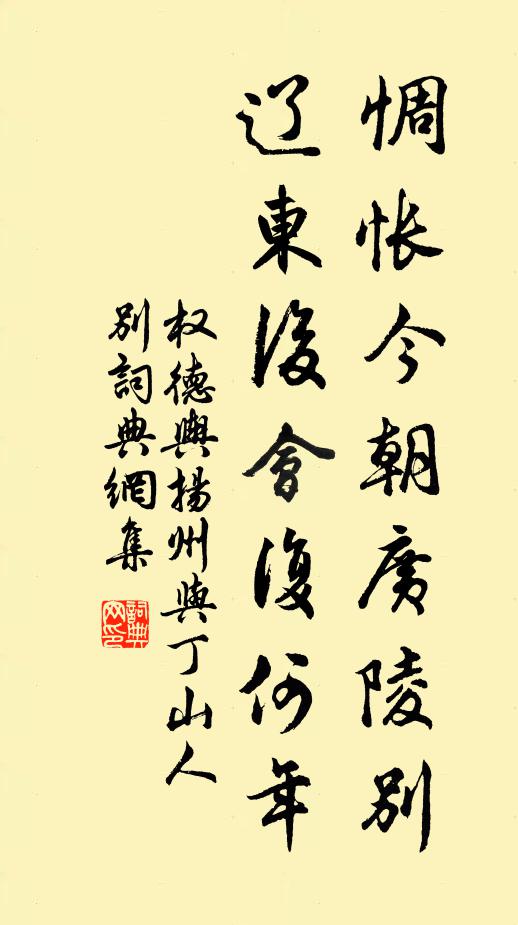 惆怅今朝廣陵别
辽東後會復何年
权德輿揚州與丁山人
别詞典網集
詞典网印